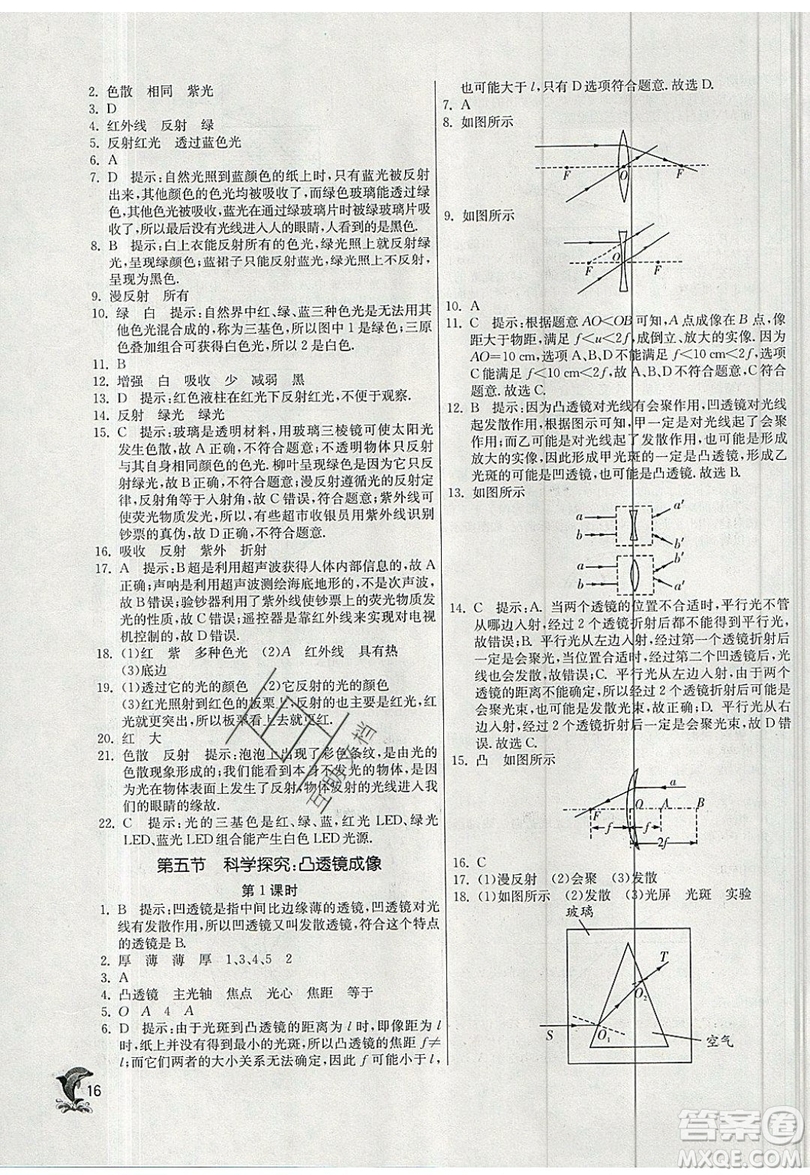 2. 色散 相同 紫光
3. D
4. 红外线 反射 绿
5. 反射红光 透过蓝色光
6. A
7. D 提示:自然光照到蓝颜色的纸上时,只有蓝光反射
出来,其他颜色的色光均被吸收了,而绿色玻璃能透过绿
色,其他色光被吸收,蓝光在通过绿玻璃片时被绿玻璃片吸
收了,所以最后没有光线进入人的眼睛,人看到的是黑色.
8. B 提示:白上衣能反射所有的色光,绿光照上就反射绿
光,呈现绿颜色;蓝裙子只能反射蓝光,绿光照上后,绿光
被吸收,呈现黑色.
9. 漫反射 所有
10. 绿 白 提示:自然界中红、绿、蓝三种色光是无法用其
他色光混合成的,称为三基色,所以图中1是绿色;三原
色叠加组合可获得白色,所以2是白色.
11. B
12. 增强 白 吸收 少 减弱 黑
13. D 提示:红色液柱在红光下反射红光,不便于观察.
14. 反射 绿光 绿光
15. C 提示:玻璃是透明材料,用玻璃三棱镜可使太阳光
发生色散,故A正确,不符合题意;不透明物体反射
与其自身相同颜色的色光.柳叶呈现绿色是因为反射
绿光,故B正确,不符合题意;漫反射遵循光的反射定
律,反射角等于入射角,故C错误,符合题意;紫外线可
使荧光物质发光,有些超市收银员用紫外线灯来识别
钞票的真伪,故D正确,不符合题意.
16. 吸收 反射 紫外 折射
17. A 提示:B超是利用超声波获得人体内部信息的,故A
正确;声呐是利用超声波测绘海底地形的,不是次声
波,故B错误;验钞器利用紫外线使钞票的荧光物质发
光,故C错误;遥控器是靠红外线来实现对电视
机控制的,故D错误.
18. (1)红 紫 多种色光 (2)A 红外线 具有热
(3)底边
19. (1)透过它的光的颜色 (2)它反射的光的颜色
(3)红光照射到红色的板栗上,反射的主要为红光,红
光就更突出,所以板栗看上去就更红.
20. 红 大
21. 色散 反射 提示:泡泡上出现了彩色条纹,是由光的
色散现象形成的;我们看到本身不发光的物体,是由于
光在物体表面上发生了反射,物体反射的光进入我
们的眼睛的缘故.
22. C 提示:光的三基色是红、绿、蓝,红光LED、绿光
LED、蓝光LED组合能产生白色LED光源.
第五节 科学探究:凸透镜成像
第1课时
1. B 提示:凹透镜是指中间比边缘薄的透镜,凹透镜对光
线有发散作用,所以凹透镜又叫发散透镜.符合这个特点
的透镜是B.
2. 厚 薄 薄 厚 1、3、4、5 2
3. A
4. 凸透镜 主光轴 焦点 光心 焦距 大于
5. O A 4 A
6. D 提示:由于光斑到凸透镜的距离为l时,即像距为l
时,纸上并没有得到最小的光斑,所以此凸透镜焦距f≠
l;而它们两者的大小关系无法确定,因此f可能小于l,
16
也可能大于l,只有D选项符合题意.故选D.
7. A
8. 如图所示
F O F
9. 如图所示
F O F
10. A
11. C 提示:根据题意AO<OB可知,A点成像在B点,像
距大于物距,即f<u<2f,成倒立、放大的实像.因
为AO=10 cm,选项A、B、D不能满足f<10 cm<2f,
选项C能满足f<10 cm<2f,所以A、B、D不符合题
意.故选C.
12. B 提示:因为凸透镜对光线有会聚作用,凹透镜对光线
起发散作用,根据图示可知,甲一定是对光线起会聚作
用的;而乙可能发生了发散作用,也可能是会聚后形成
放大的实像,因此形成甲光斑的一定是凸透镜,形成乙
光斑的可能是凹透镜,也可能是凸透镜.故选B.
13. 如图所示
a b a′ b′
a b b′ a′
14. C 提示:A. 当两个透镜的位置不合适时,平行光不管
从哪边入射,经过2个透镜折射后都不能得到平行光,
故错误;B. 平行光从左边入射,经过第一个透镜折射后
一定会聚光,但光线会聚后再通过第二个透镜后,光线
也会发散,故错误;C. 平行光从左边入射,由于两个透
镜的距离不能确定,所以,经过2个透镜折射后可能是
会聚光束,也可能是发散光束,故正确;D. 平行光从右
边入射,经过2个透镜折射后可能是会聚光束,故D错
误.故选C.
15. 凸 如图所示
a F O A B f f 2f
16. C
17. (1)漫反射 (2)会聚 (3)发散
18. (1)如图所示 (2)发散 (3)光屏 光斑 实验
玻璃
T
O₂
S O₁
空气
答案圈
MXQE.COM